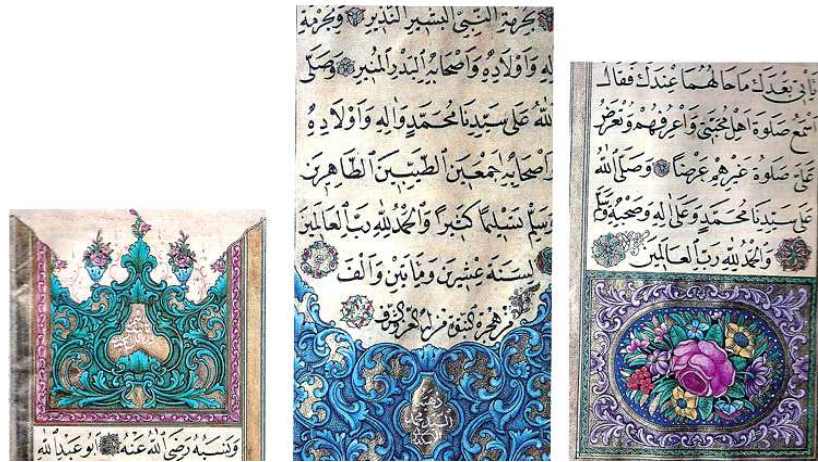 وَنَسَبُهُ رَضِيَ اللّٰهُ عَنْهُ اَبُو عَبْدِ اللّٰهِ
بِحُرْمَةِ النَّبِيِّ الْبَشِيرِ النَّذِيرِ وَبِحُرْمَةِ
اٰلِهِ وَاَوْلَادِهِ وَاَصْحَابِهِ الْبَدْرِ الْمُنِيرِ وَصَلَّى
اللّٰهُ عَلٰى سَيِّدِنَا مُحَمَّدٍ وَاٰلِهِ وَاَوْلَادِهِ
وَاَصْحَابِهِ اَجْمَعِينَ الطَّيِّبِينَ الطَّاهِرِينَ
وَسَلَّمَ تَسْلِيمًا كَثِيرًا وَالْحَمْدُ لِلّٰهِ رَبِّ الْعَالَمِينَ
لِسَنَةِ عِشْرِينَ وَمِاَتَيْنِ وَاَلْف
من هجرة النبوة من له العز والشرف
يَاْتِي بَعْدَكَ مَا حَالُهُمَا عِنْدَكَ فَقَالَ
اَسْمَعُ صَلٰوةَ اَهْلِ مَحَبَّتِي وَاَعْرِفُهُمْ وَتُعْرَضُ
عَلَيَّ صَلٰوةُ غَيْرِهِمْ عَرْضًا وَصَلَّى اللّٰهُ
عَلٰى سَيِّدِنَا مُحَمَّدٍ وَعَلٰى اٰلِهِ وَصَحْبِهِ وَسَلَّمَ
وَالْحَمْدُ لِلّٰهِ رَبِّ الْعَالَمِينَ